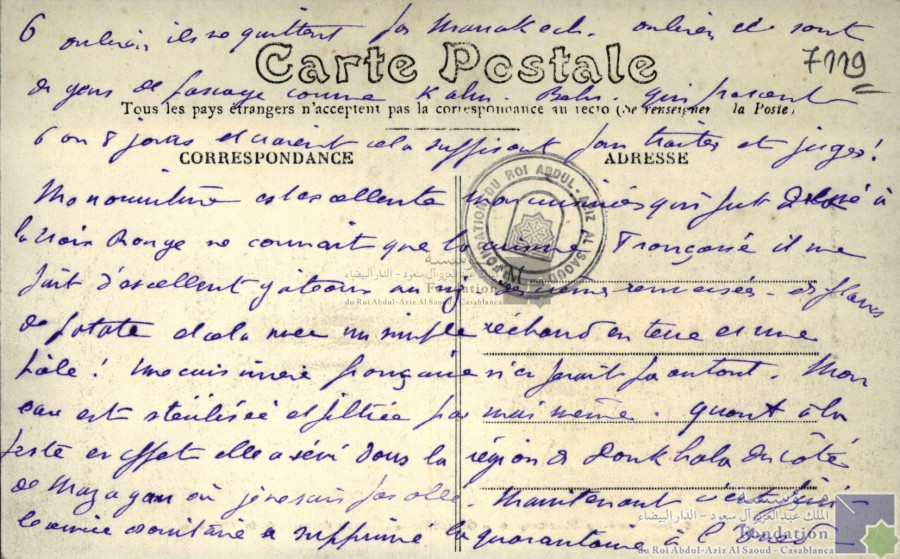 6 ou bien ils ne quittent pas Marrakech. ou bien ce sont
Carte Postale
7119
de gens de passage comme Kahn. Behr. qui passent
Tous les pays étrangers n'acceptent pas la correspondance au recto (Se renseigner à la Poste)
6 ou 8 jours et croient cela suffisant pour traiter et juger!
CORRESPONDANCE
ADRESSE
Ma nourriture est excellente ma cuisinière qui fut à
la Croix Rouge ne connait que la cuisine Française il me
fait d'excellents gateaux au riz de crème renversée - et flancs
de patate et cela avec un simple réchaud en terre et une
poële! Une cuisinière française n'en ferait pas autant. Mon
eau est stérilisée et filtrée par moi même. quant à la
peste en effet elle a sévi dans la région de Doukkala du côté
de Mazagan où je ne suis pas allé. Maintenant c'est fini -
le service sanitaire a supprimé la quarantaine à
FONDATION DU ROI ABDUL-AZIZ AL SAOUD
مؤسسة
الملك عبد العزيز آل سعود - الدار البيضاء
Fondation
du Roi Abdul-Aziz Al Saoud - Casablanca
مؤسسة
الملك عبد العزيز آل سعود - الدار البيضاء
Fondation
du Roi Abdul-Aziz Al Saoud - Casablanca